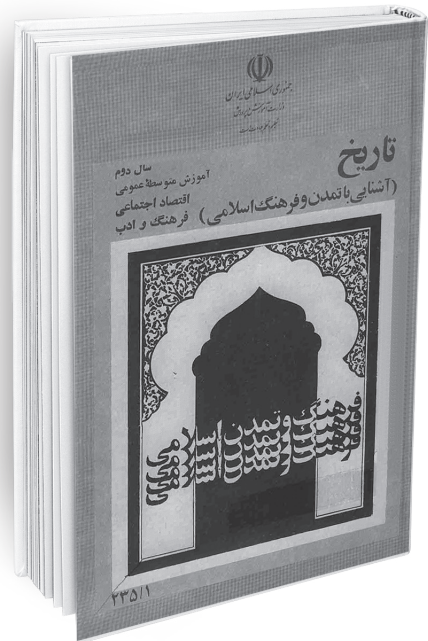 جمهوری اسلامی ایران
وزارت آموزش و پرورش
تاریخ
(آشنایی با تمدن و فرهنگ اسلامی)
سال دوم
آموزش متوسطهٔ عمومی
اقتصاد اجتماعی
فرهنگ و ادب
فرهنگ و تمدن اسلامی
فرهنگ و تمدن اسلامی
فرهنگ و تمدن اسلامی
۲۳۵/۱